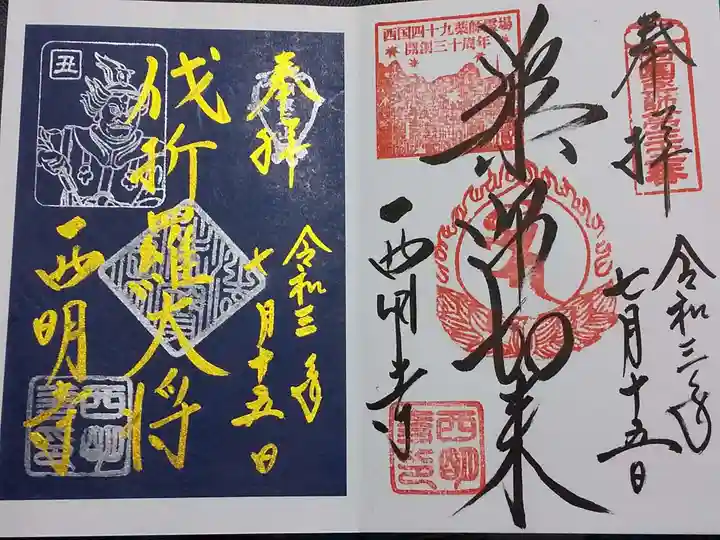 奉拝
令和三年
七月十五日
薬師如来
西明寺
西国四十九薬師霊場
開創三十周年
西明
寺印
奉拝
令和三年
七月十五日
伐折羅大将
西明寺
丑
西明
寺印